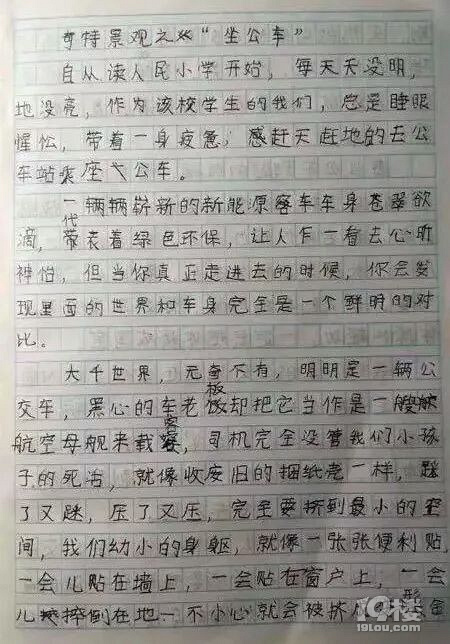 奇特景观之 "坐公车"
自从读人民小学开始，每天天没明，
地没亮，作为该校学生的我们，总是睡眼
惺忪，带着一身疲惫，感赶天赶地的去公
车站乘座 公车。
一辆辆崭新的新能原客车车身苍翠欲
滴，带代表着绿色环保，让人乍一看去心旷
神怡，但当你真正走进去的时候，你会发
现里面的世界和车身完全是一个鲜明的对
比。
大千世界，无奇不有，明明是一辆公
交车，黑心的车老板却把它当作是一艘
航空母舰来载客，司机完全没管我们小孩
子的死活，就像收废旧的捆纸壳一样，踩
了又踩，压了又压，完全要挤到最小的空
间，我们幼小的身躯，就像一张张便利贴，
一会儿贴在墙上，一会贴在窗户上，一会
儿 摔倒在地一不小心就会被挤成 形
19楼
19lou.com